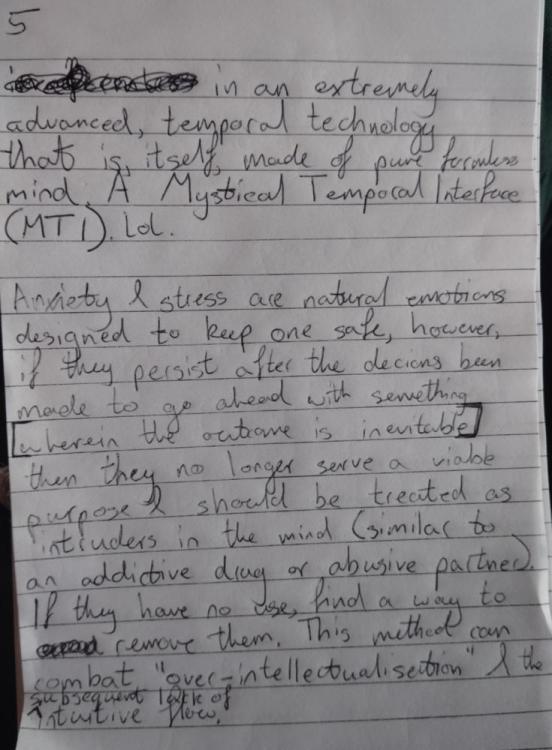 5
in an extremely
advanced, temporal technology
that is, itself, made of pure formless
mind. A Mystical Temporal Interface
(MTI). Lol.
Anxiety & stress are natural emotions
designed to keep one safe, however,
if they persist after the decions been
made to go ahead with something
[wherein the outcome is inevitable]
then they no longer serve a viable
purpose & should be treated as
intruders in the mind (similar to
an addictive drug or abusive partner).
If they have no use, find a way to
remove them. This method can
combat "over-intellectualisation" & the
subsequent lack of
intuitive flow.